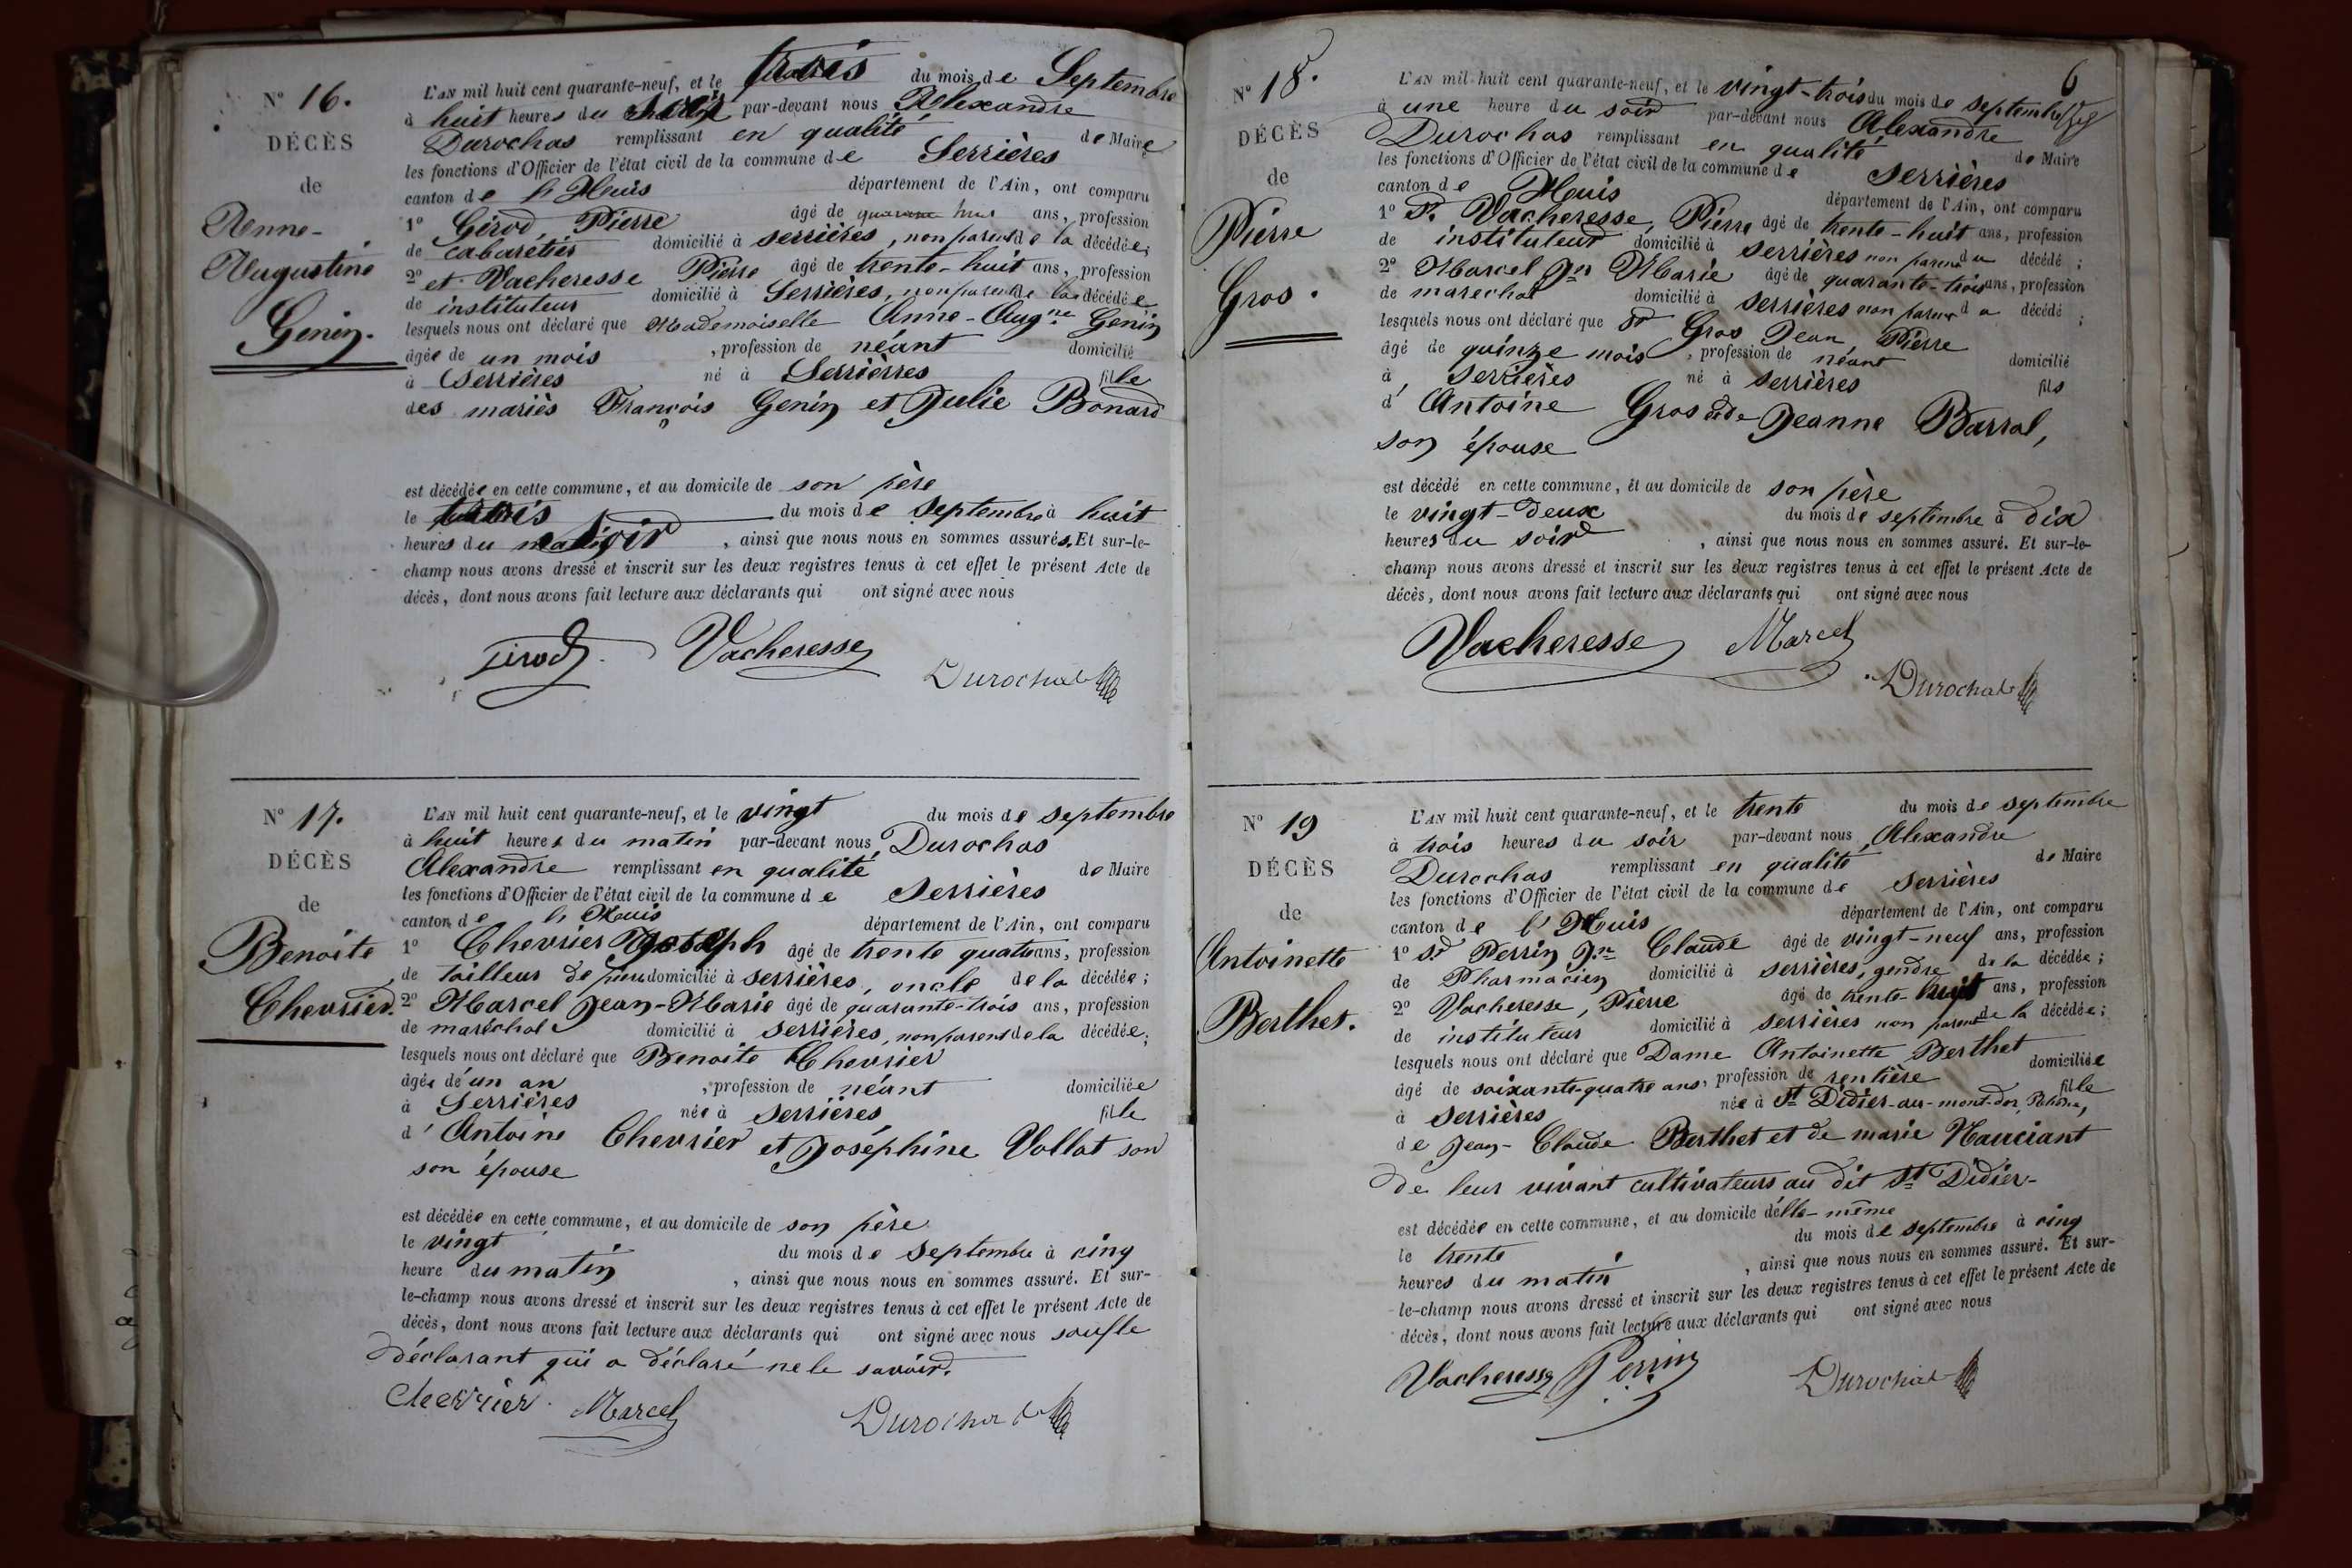 N° 16.
DÉCÈS
de
Anne-
Augustine
Genin.
L'AN mil huit cent quarante-neuf, et le trois du mois de Septembre
à huit heures du soir par-devant nous Alexandre
Durochas remplissant en qualité de Maire
les fonctions d'Officier de l'état civil de la commune de Serrières
canton de l'Huis département de l'Ain, ont comparu
1° Girod, Pierre âgé de quarante huit ans, profession
de cabaretier domicilié à serrières, non parent de la décédée;
2° et Vacheresse Pierre âgé de trente-huit ans, profession
de instituteur domicilié à Serrières, non parent de la décédée
lesquels nous ont déclaré que Mademoiselle Anne-Augne Genin
âgée de un mois , profession de néant domicilié
à Serrières né à Serrièrres fille
des mariès François Genin et Julie Bonard
est décédée en cette commune, et au domicile de son père
le trois du mois de Septembre à huit
heures du soir , ainsi que nous nous en sommes assurés. Et sur-le-
champ nous avons dressé et inscrit sur les deux registres tenus à cet effet le présent Acte de
décès, dont nous avons fait lecture aux déclarants qui ont signé avec nous
Girod Vacheresse
Durochat
N° 17.
DÉCÈS
de
Benoite
Chevrier.
L'AN mil huit cent quarante-neuf, et le vingt du mois de septembre
à huit heures du matin par-devant nous, Durochas
Alexandre remplissant en qualité de Maire
les fonctions d'Officier de l'état civil de la commune de Serrières
canton de l'Huis département de l'Ain, ont comparu
1° Chevrier Joseph âgé de trente quatre ans, profession
de tailleur de domicilié à serrières, oncle de la décédée;
2° Marcel Jean-Marie âgé de quarante-trois ans, profession
de maréchal domicilié à serrières, non parent de la décédée;
lesquels nous ont déclaré que Benoite Chevrier
âgée d'un an , profession de néant domiciliée
à Serrières née à serrières, fille
d'Antoine Chevrier et Joséphine Vollat son
son épouse
est décédée en cette commune, et au domicile de son père
le vingt du mois de septembre à cinq
heure du matin , ainsi que nous nous en sommes assuré. Et sur-
le-champ nous avons dressé et inscrit sur les deux registres tenus à cet effet le présent Acte de
décès, dont nous avons fait lecture aux déclarants qui ont signé avec nous
déclarant qui a déclaré ne le savoir.
Chevrier. Marcel
Durochat
N° 18.
DÉCÈS
de
Pierre
Gros.
6
L'AN mil huit cent quarante-neuf, et le vingt-trois du mois de septembre
à une heure du soir par-devant nous Alexandre
Durochas remplissant en qualité de Maire
les fonctions d'Officier de l'état civil de la commune de Serrières
canton de Huis département de l'Ain, ont comparu
1° Sr. Vacheresse, Pierre âgé de trente-huit ans, profession
de instituteur domicilié à serrières non parent du décédé;
2° Marcel Jn Marie âgé de quarante-trois ans, profession
de marechal domicilié à serrières non parent du décédé;
lesquels nous ont déclaré que Gros Jean, Pierre
âgé de quinze mois , profession de néant domicilié
à serrières né à serrières fils
d'Antoine Gros et de Jeanne Barral,
son épouse
est décédé en cette commune, et au domicile de son père
le vingt-deux du mois de septembre à dix
heures du soir , ainsi que nous nous en sommes assuré. Et sur-le-
champ nous avons dressé et inscrit sur les deux registres tenus à cet effet le présent Acte de
décès, dont nous avons fait lecture aux déclarants qui ont signé avec nous
Vacheresse Marcel
Durochat
N° 19
DÉCÈS
de
Antoinette
Berthet.
L'AN mil huit cent quarante-neuf, et le trente du mois de septembre
à trois heures du soir par-devant nous, Alexandre
Durochas remplissant en qualité de Maire
les fonctions d'Officier de l'état civil de la commune de Serrières
canton de l'Huis département de l'Ain, ont comparu
1° Sr Perrin Jn Claude âgé de vingt-neuf ans, profession
de Pharmacien domicilié à serrières, gendre de la décédée;
2° Vacheresse, Pierre âgé de trente-huit ans, profession
de instituteur domicilié à serrières non parent de la décédée;
lesquels nous ont déclaré que Dame Antoinette Berthet domiciliée
âgé de soixante-quatre ans, profession de rentière fille
à serrières née à St Didier-au-mont-dor,
de Jean-Claude Berthet et de marie Nauciant
de leur vivant cultivateurs au dit St Didier-
est décédée en cette commune, et au domicile d'elle-même
le trente du mois de septembre à cinq
heures du matin , ainsi que nous nous en sommes assuré. Et sur-
le-champ nous avons dressé et inscrit sur les deux registres tenus à cet effet le présent Acte de
décès, dont nous avons fait lecture aux déclarants qui ont signé avec nous
Vacheresse Perrin
Durochat